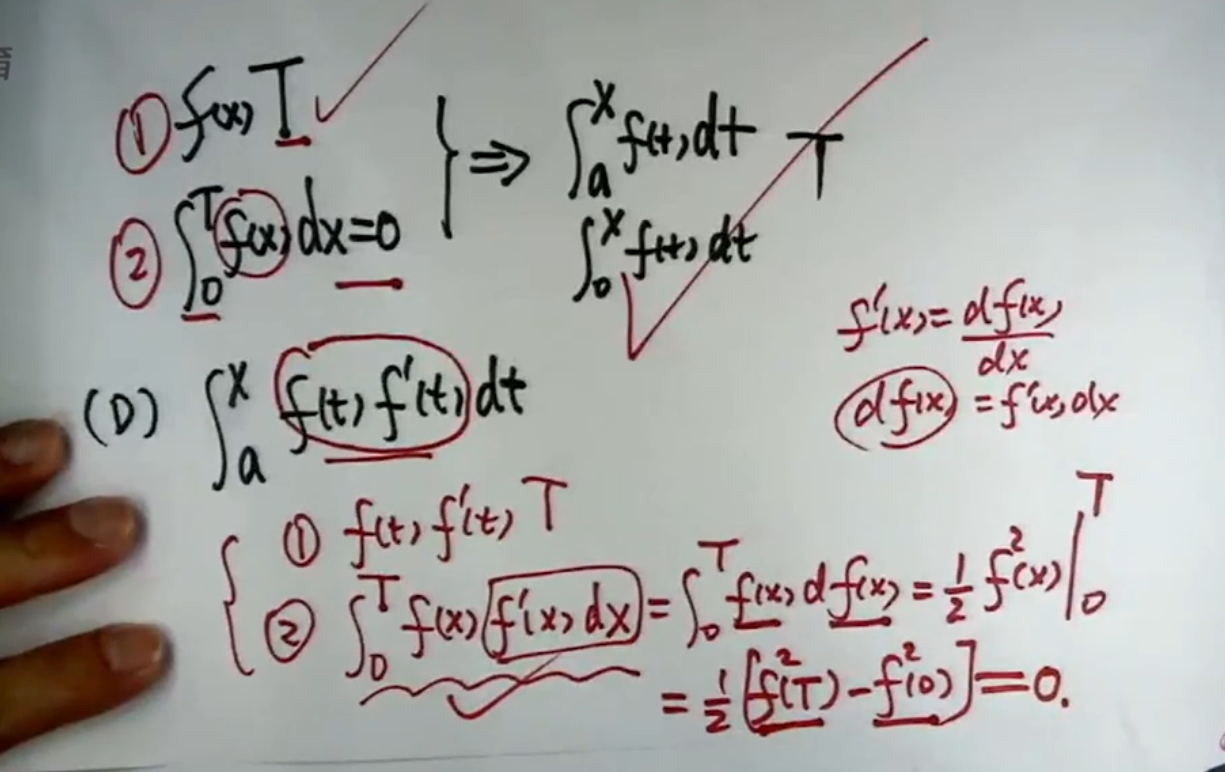 育
① f(x) T
② ∫₀ᵀ f(x) dx = 0
} ⇒ ∫ₐˣ f(t) dt T
∫₀ˣ f(t) dt
f'(x) = df(x)/dx
df(x) = f'(x) dx
(D) ∫ₐˣ f(t) f'(t) dt
{ ① f(t) f'(t) T
② ∫₀ᵀ f(x) f'(x) dx = ∫₀ᵀ f(x) d f(x) = ½ f²(x) |₀ᵀ
= ½ [f²(T) - f²(0)] = 0.